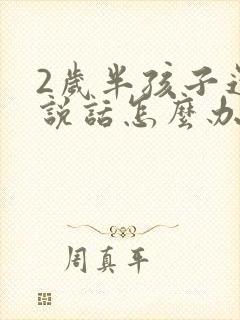 2歲半孩子
說話怎麼办
周真平